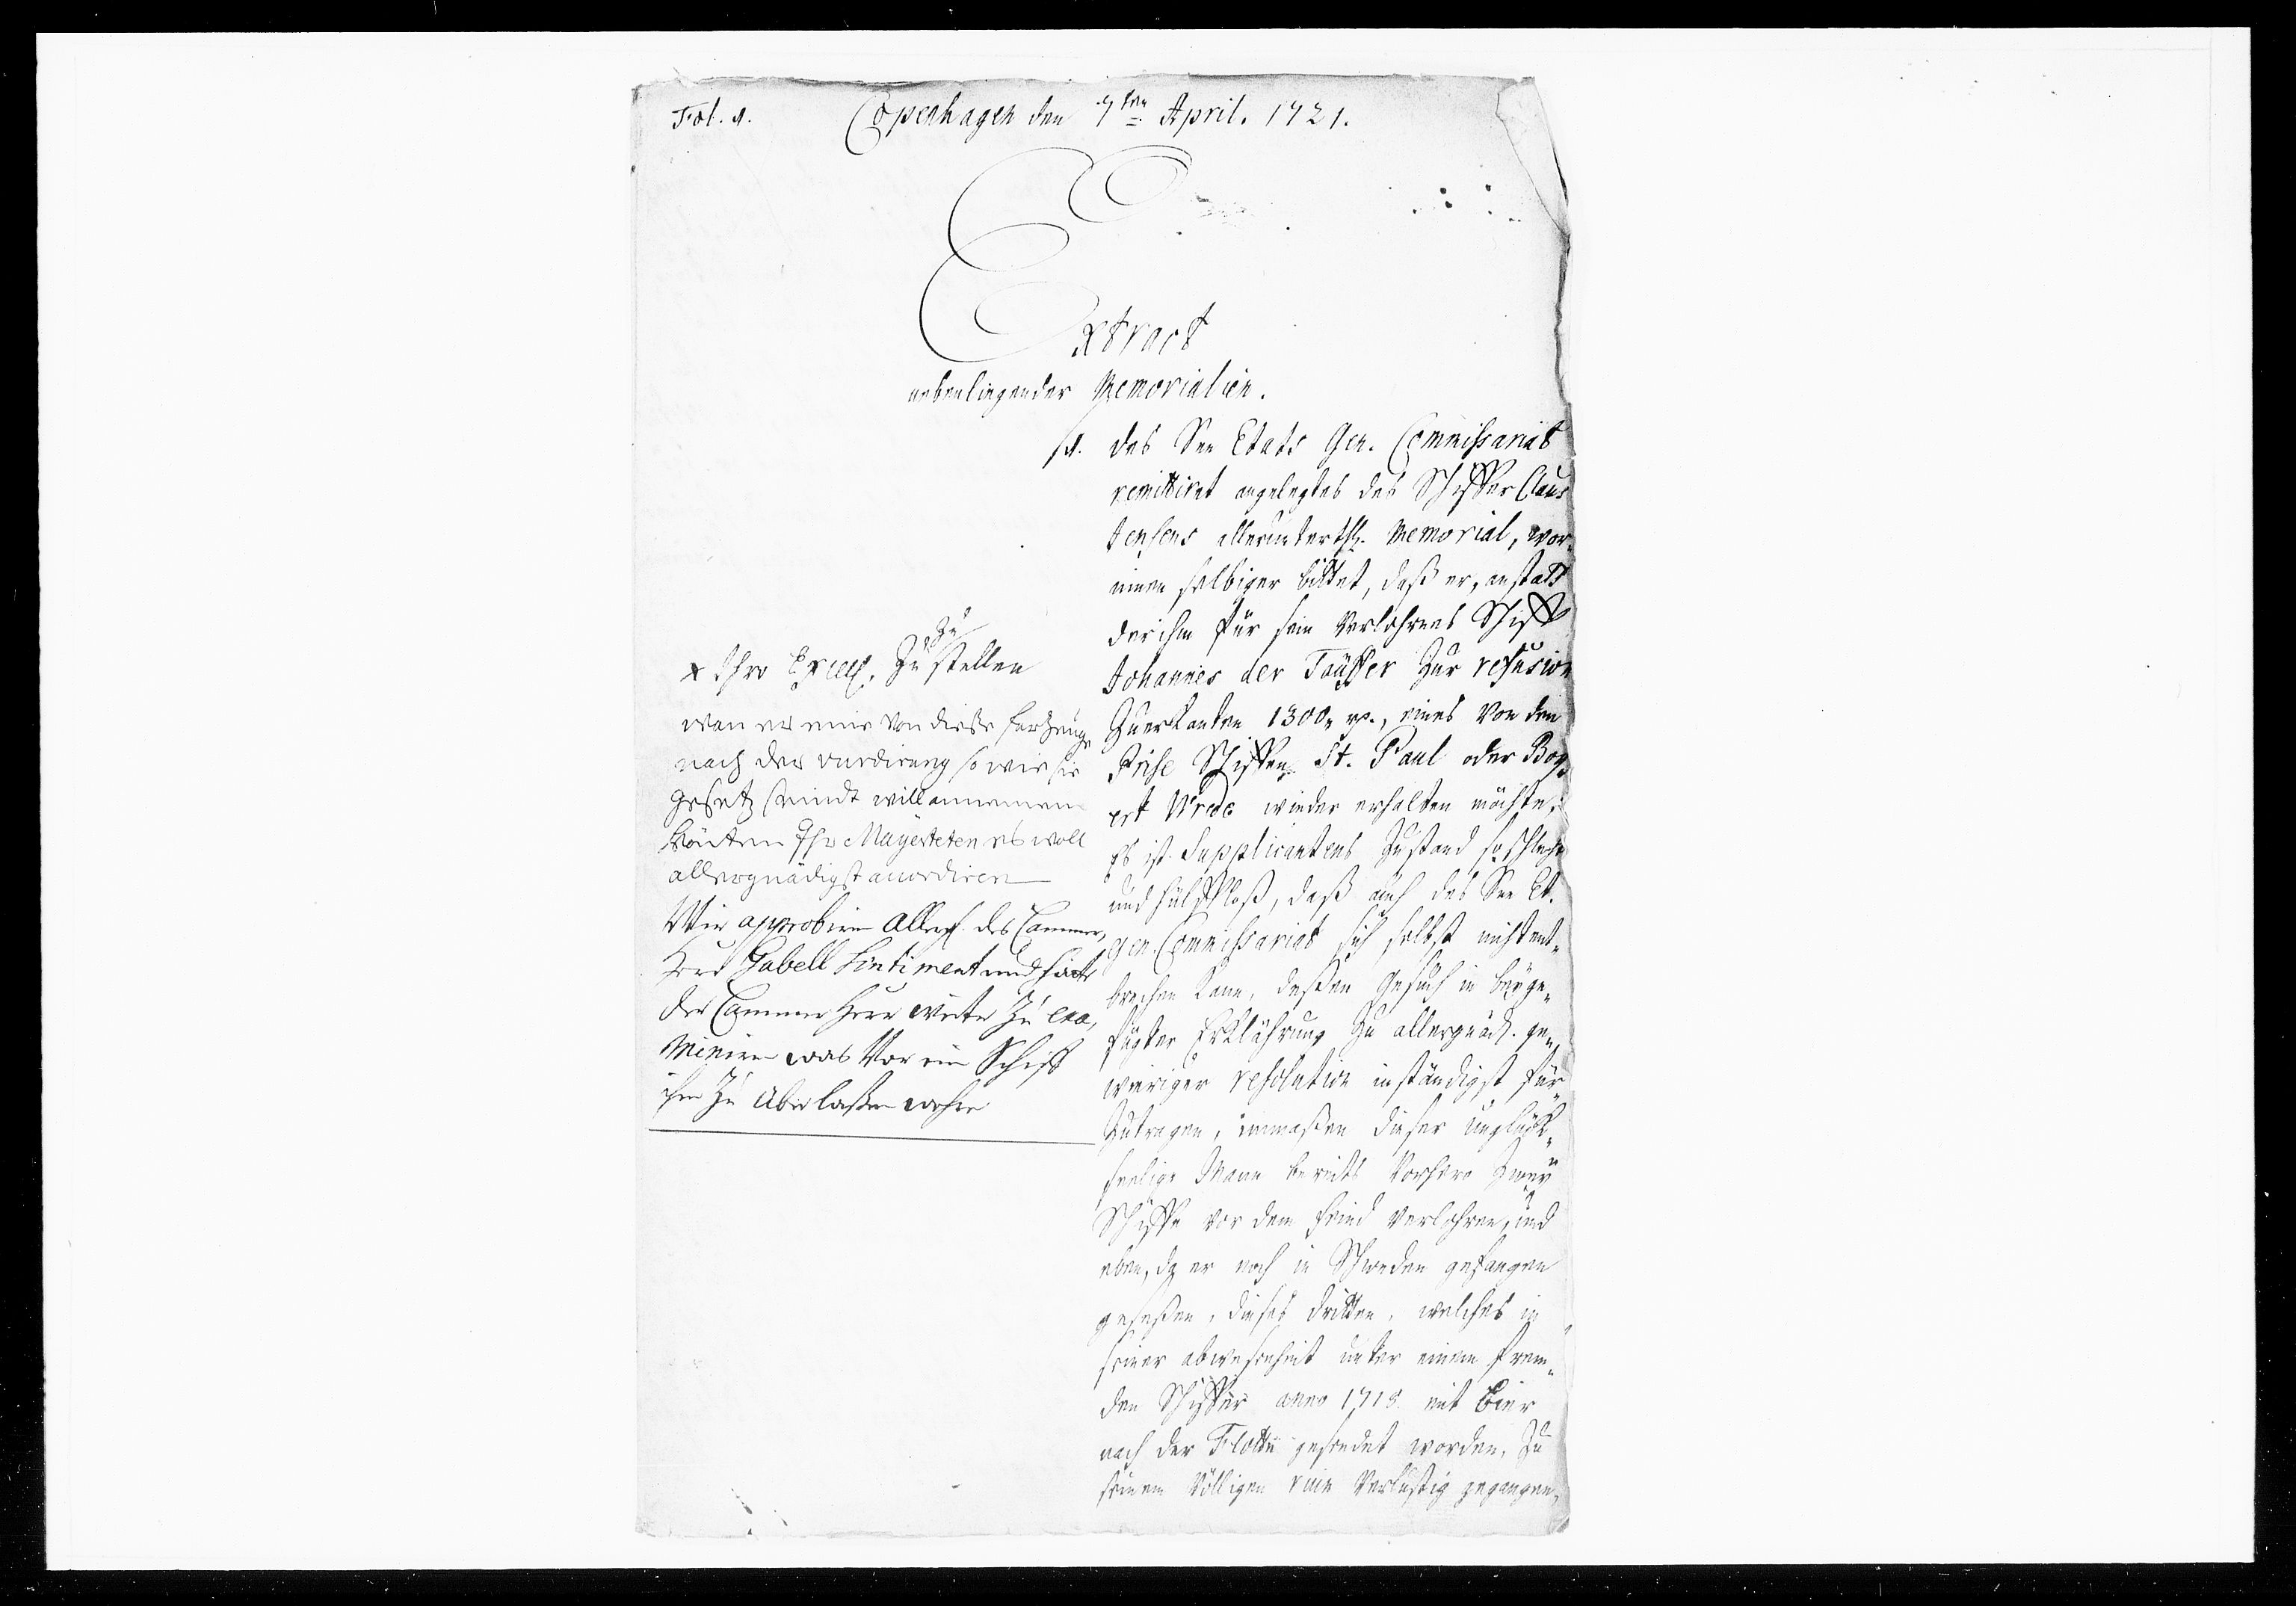 Fol. 1.
Copenhagen den 7ten April. 1721.
Extract
nebenliegender Memorialien.
1. Das See Etats Gen. Commissariat
remittiret angelegtes des Schiffer Claus
Jensens alleruntertgs. Memorial, wor-
innen selbiger bittet, daß er, anstatt
der ihm für sein verlohrnes Schiff
Johannes der Täuffer zur refusion
zuerkanten 1300 rp., eines von den
Prise Schiffen St. Paul oder Boy-
ert Wrede wieder erhalten möchte;
Es ist Supplicantens Zustand so schlecht
und hülffloß, daß auch das See Et.
Gen. Commissariat sich selbst nicht ent-
brechen kann, deßen Gesuch in beyge-
fügter Erklährung zu allergnäd. ge-
wieriger resolution inständigst für-
zutragen, immaßen dieser unglück-
seelige Mann bereits vorhero zwey
Schiffe vor dem Feind verlohren, und
eben, da er noch in Schweden gefangen
geseßen, dieses dritten, welches in
seiner abwesenheit unter einem frem-
den Schiffer anno 1718 mit Bier
nach der Flotte gesendet worden, zu
seinem völligen ruin verlustig gegangen,
zu
x Ihro Excell. zu stellen
wan er eins von diese farzeuge
nach der vurdirung so wie sie
gesetz seindt will annemen
könten Ihr Mayesteten es woll
allergnädigst accordiren
Wir approbiren Allergn. des Cammer,
Herr Gabell Sentiment und hatt
der Cammer Herr weiter zu exa,
miniren was vor ein Schiff
ihm zu überlaßen wehre